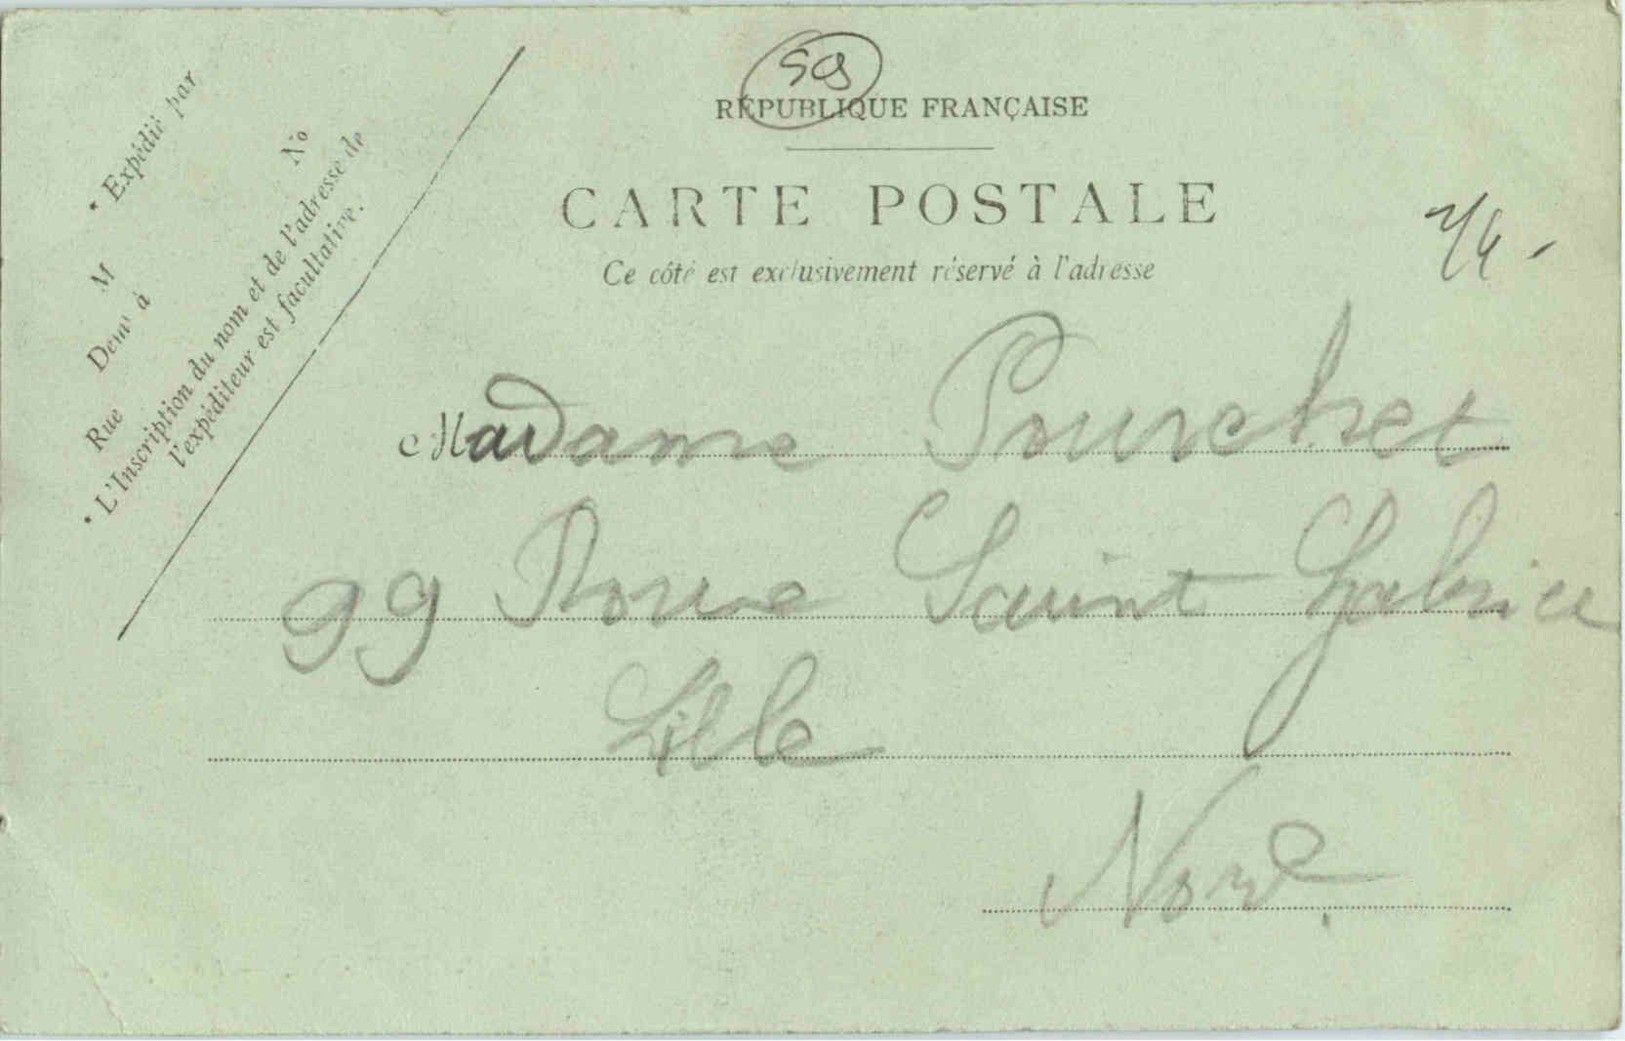 59
RÉPUBLIQUE FRANÇAISE
CARTE POSTALE
Ce côté est exclusivement réservé à l'adresse
* Expédié par
M
No
Demt à
Rue
* L'Inscription du nom et de l'adresse de
l'expéditeur est facultative.
Madame Pourchet
99 Rue Saint Gabriel
Lille
Nord.